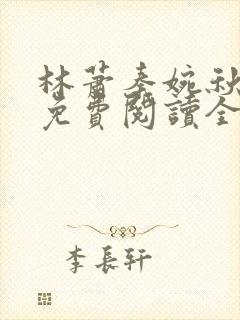 林蕭秦婉秋
免費閱讀全
李長軒